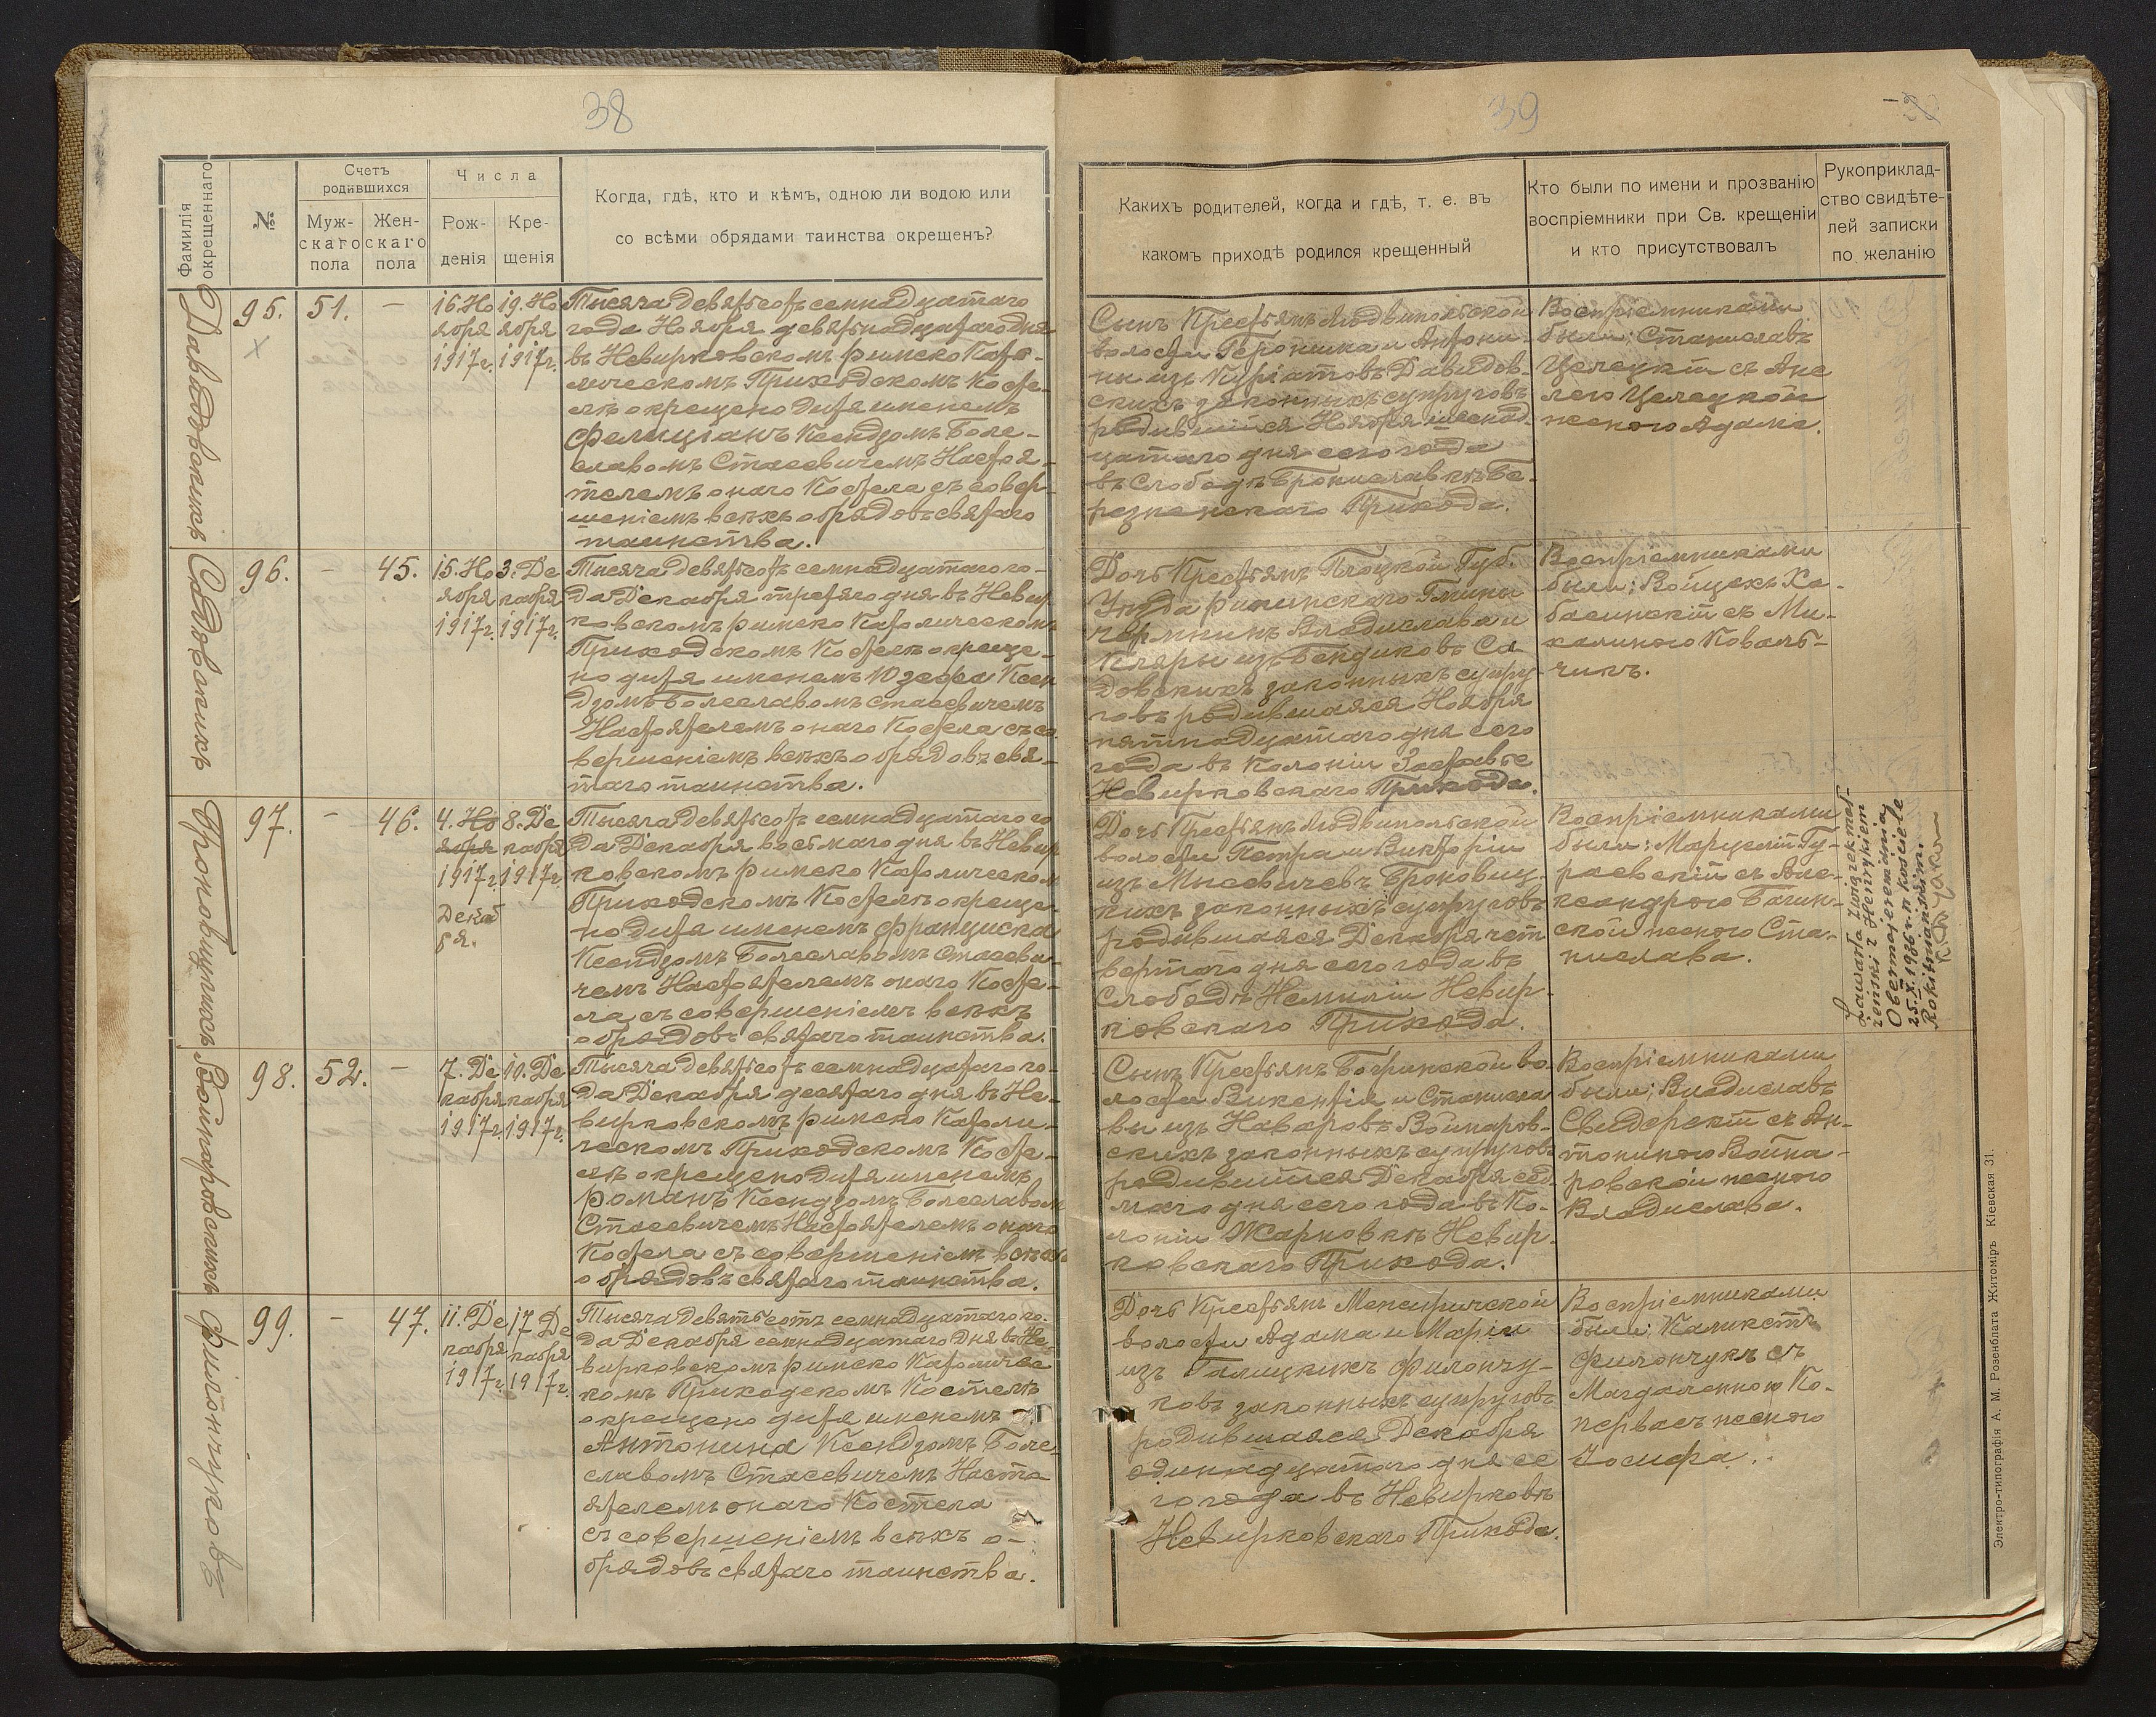 38
Фамилія окрещеннаго
№
Счетъ родившихся
Муж-
скаго
пола
Жен-
скаго
пола
Числа
Рож-
денія
Кре-
щенія
Когда, гдѣ, кто и кѣмъ, одною ли водою или
со всѣми обрядами таинства окрещенъ?
Давыдовскихъ
95.
51.
—
16. Но
ября
1917г.
19. Но
ября
1917г.
Тысяча девятьсотъ семнадцатаго
года Ноября девятнадцатаго дня
въ Невирковскомъ римско Като-
лическомъ Приходскомъ Косте-
лѣ окрещено дитя именемъ
Фелиціанъ Ксендзомъ Боле-
славомъ Стасевичемъ Настоя-
телемъ онаго Костела съ совер-
шеніемъ всѣхъ обрядовъ святаго
таинства.
Садовскихъ
96.
—
45.
15. Но
ября
1917г.
3. Де
кабря
1917г.
Тысяча девятьсотъ семнадцатаго го-
да Декабря третяго дня въ Невир
ковскомъ римско Католическомъ
Приходскомъ Костелѣ окреще-
но дитя именемъ Юзефа Ксен
дзомъ Болеславомъ Стасевичемъ
Настоятелемъ онаго Костела съ со
вершеніемъ всѣхъ обрядовъ свя-
таго таинства.
Броновицкихъ
97.
—
46.
4. Но
ября
1917г.
Декаб
ря.
8. Де
кабря
1917г.
Тысяча девятьсотъ семнадцатаго го
да Декабря восьмаго дня въ Невир
ковскомъ римско Католическом
Приходскомъ Костелѣ окреще-
но дитя именемъ Франциска
Ксендзомъ Болеславомъ Стасеви-
чемъ Настоятелемъ онаго Косте-
ла съ совершеніемъ всѣхъ
обрядовъ святаго таинства.
Войнаровскихъ
98.
52.
—
7. Де
кабря
1917г.
10. Де
кабря
1917г.
Тысяча девятьсотъ семнадцатаго го-
да Декабря десятаго дня въ Не-
вирковскомъ римско Католи-
ческомъ Приходскомъ Косте-
лѣ окрещено дитя именемъ
Романъ Ксендзомъ Болеславом
Стасевичемъ Настоятелемъ онаго
Костела съ совершеніем всѣхъ
обрядовъ святаго таинства.
Филончуковъ
99.
—
47.
11. Де
кабря
1917г.
17 Де
кабря
1917г.
Тысяча девятьсотъ семнадцатаго го-
да Декабря семнадцатаго дня въ Не
вирковскомъ римско Католичес
комъ Приходскомъ Костелѣ
окрещено дитя именемъ
Антонина Ксендзомъ Боле-
славомъ Стасевичемъ Насто
ятелемъ онаго Костела
съ совершеніемъ всѣхъ о-
брядовъ святаго таинства.
39
Какихъ родителей, когда и гдѣ, т. е. въ
какомъ приходѣ родился крещенный
Кто были по имени и прозванію
воспріемники при Св. крещеніи
и кто присутствовалъ
Рукоприклад-
ство свидѣте-
лей записки
по желанію
Сынъ Крестьянъ Людвипольской
волости Геронима и Антони-
ны изъ Куріатовъ Давыдов-
скихъ законныхъ супруговъ
родившійся Ноября шеснад-
цатаго дня сего года
въ Слободѣ Брониславкѣ Бе-
резненскаго Прихода.
Воспріемниками
были: Станиславъ
Целецкій съ Ане
лею Целецкой
женою Адама.
Дочь Крестьянъ Плоцкой Губ.
Уѣзда рипинскаго Гмины
Чермнинъ Владислава и
Кляры изъ Бендиковъ Са
довскихъ законныхъ супру-
говъ родившаяся Ноября
пятнадцатаго дня сего
года въ Колоніи Заставье
Невирковскаго Прихода.
Воспріемниками
были: Войцехъ Ха-
басинскій съ Ми-
халиною Коваль-
чикъ.
Дочь Крестьянъ Людвипольской
волости Петра и Викторіи
изъ Мысевичевъ Броновиц-
кихъ законныхъ супруговъ
родившаяся Декабря чет
вертаго дня сего года въ
Слободѣ Немиліи Невир-
ковскаго Прихода.
Воспріемниками
были: Марцелій Гу-
раевскій съ Але-
ксандрою Багин-
ской женою Ста-
нислава.
Zawarła związek mał-
żeński z Henrykiem
Obermajerem dnia
25.X.1936 r. w kościele
Rokitniańskim.
Сынъ Крестьянъ Бугринской во-
лости Викентія и Станисла
вы изъ Назаровъ Войнаров-
скихъ законныхъ супруговъ
родившійся Декабря сед
маго дня сего года въ Ко-
лоніи Жарновкѣ Невир-
ковскаго Прихода.
Воспріемниками
были: Владиславъ
Свидерскій съ Ан-
тониною Война-
ровской женою
Владислава.
Дочь Крестьянъ Межиричской
волости Адама и Маріи
изъ Галицкихъ Филончу-
ковъ законныхъ супруговъ
родившаяся Декабря
одинадцатаго дня се
го года въ Невирковѣ
Невирковскаго Прихода.
Воспріемниками
были: Каликстъ
Филончукъ съ
Магдаленною Ко-
первасъ женою
Іосифа.
Электро-типографія А. М. Розенблата Житоміръ Кіевская 31.